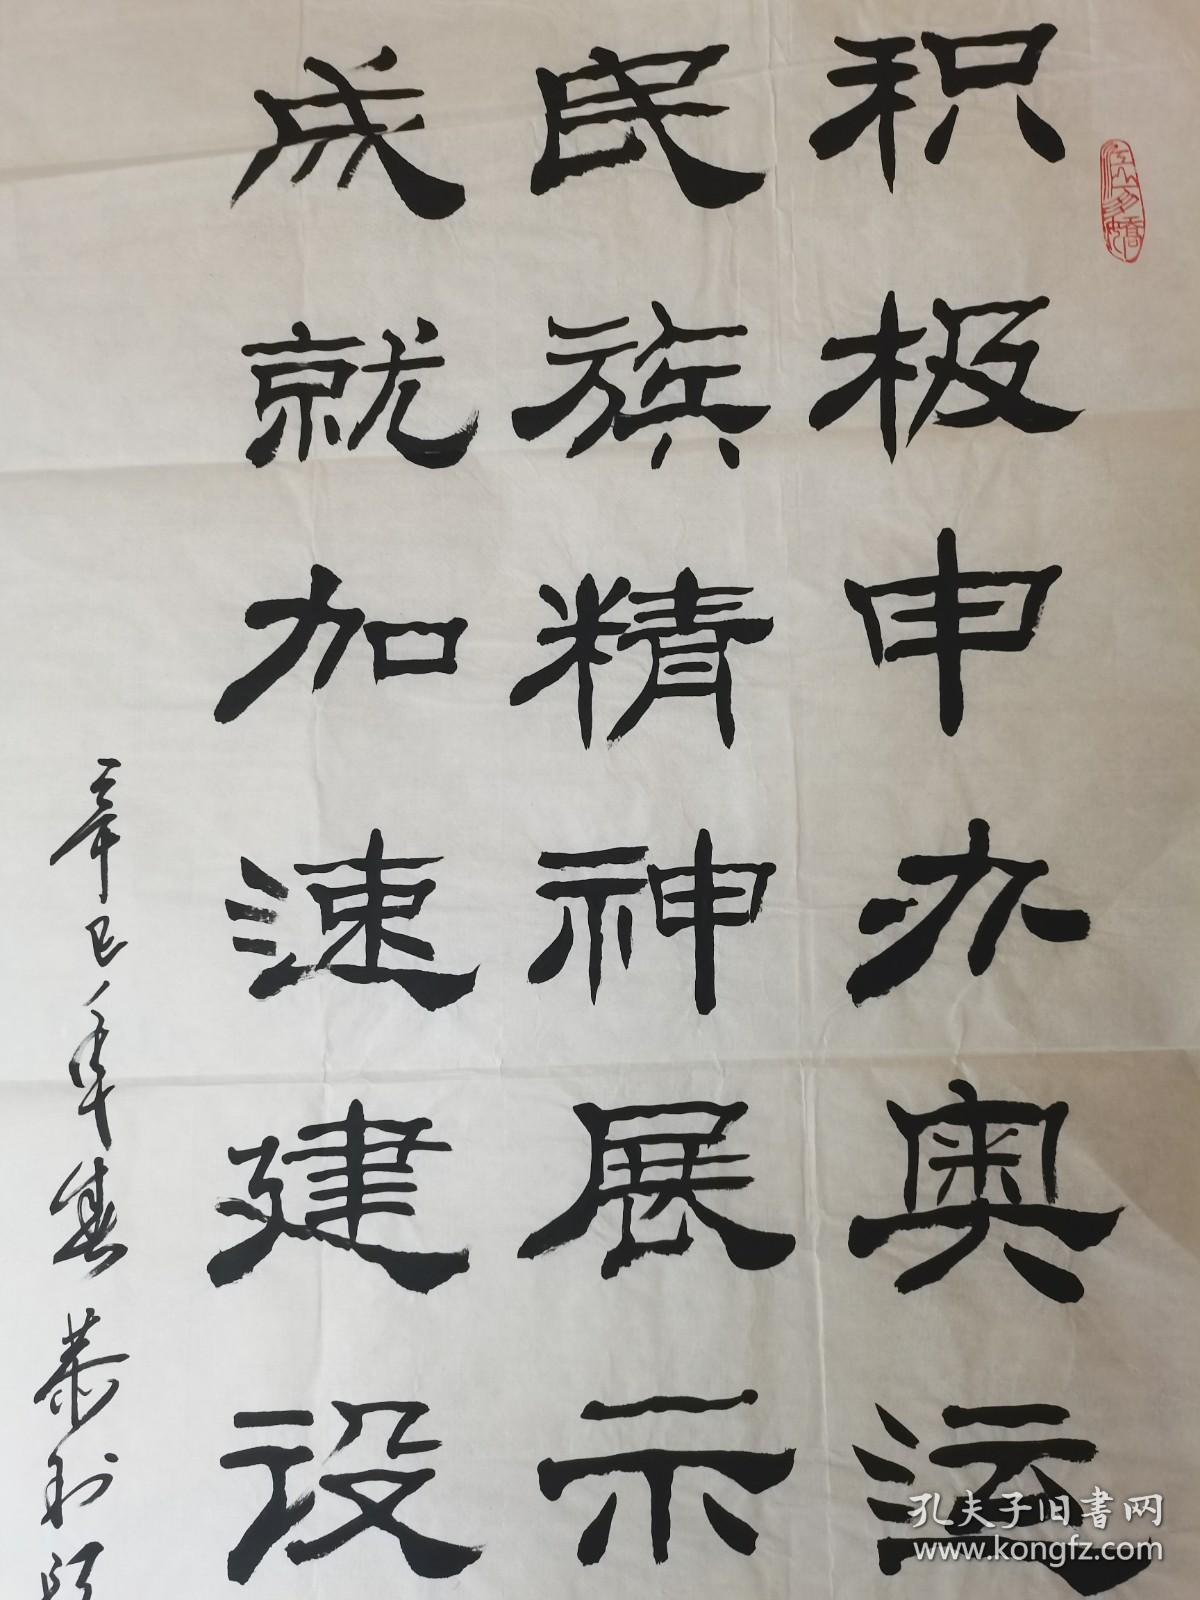 积极申办奥运
民族精神展示
成就加速建设
辛巳年春
江山多娇
孔夫子旧书网
www.kongfz.com